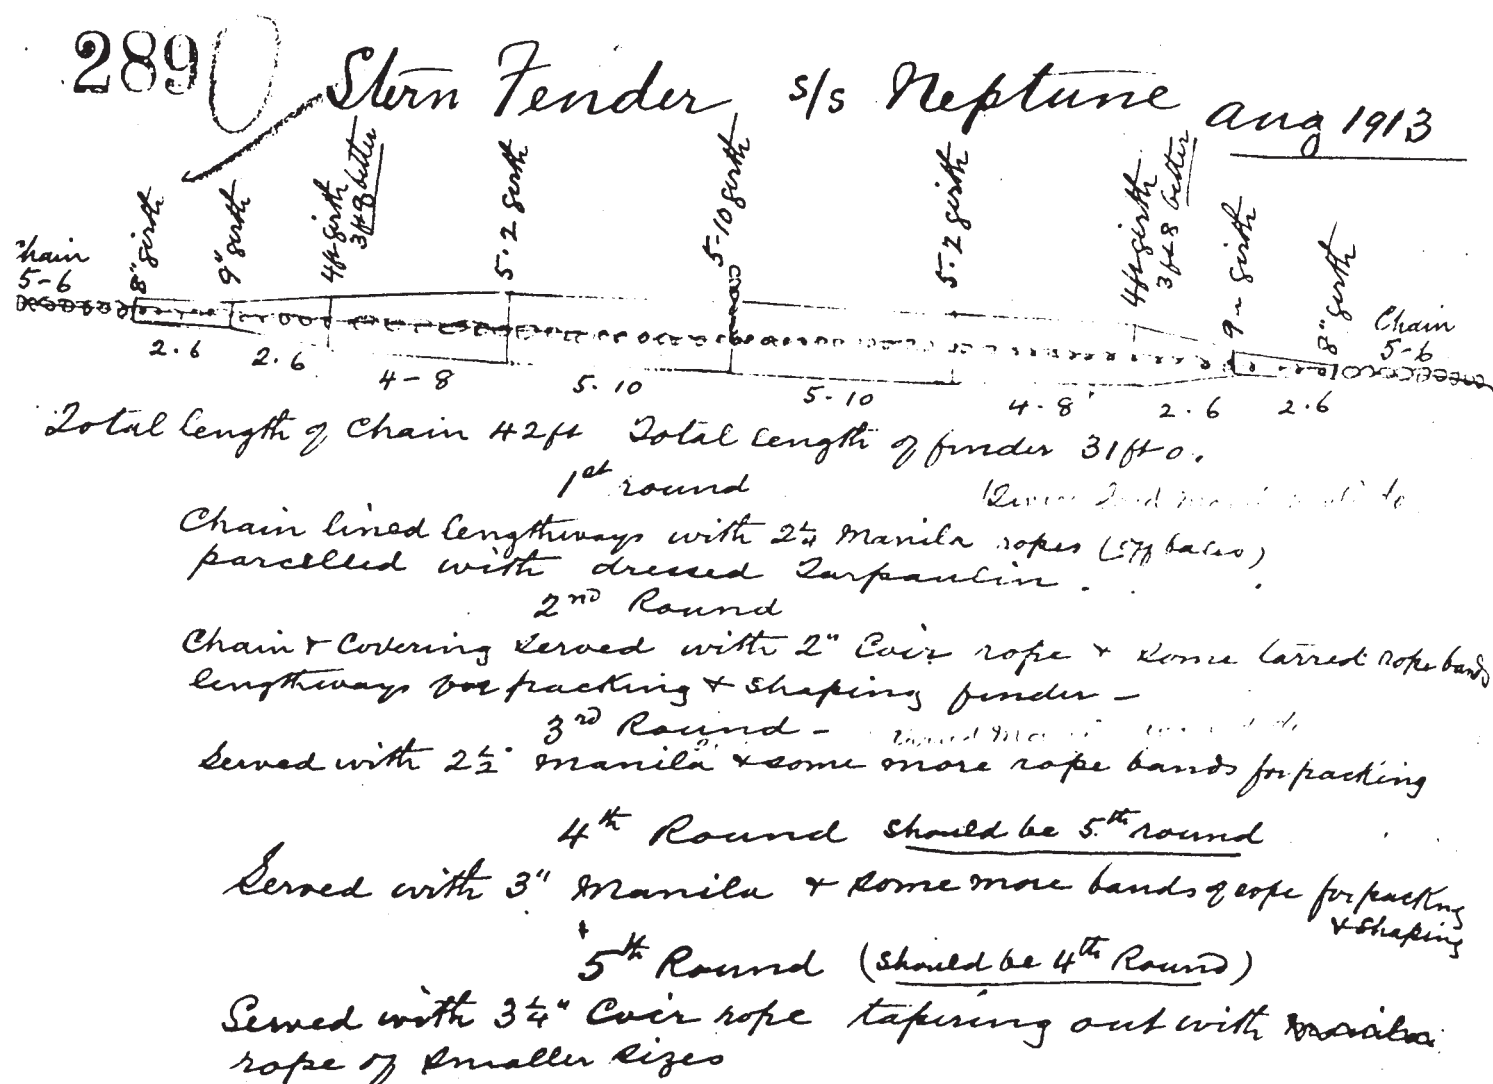 289
Stern Fender s/s Neptune Aug 1913
8" girth
9" girth
4ft girth
3ft 8 better
5.2 girth
5-10 girth
5.2 girth
4ft girth
3ft 8 better
9" girth
8" girth
Chain
5-6
Chain
5-6
2.6 2.6 4-8 5.10 5-10 4-8 2.6 2.6
Total length of Chain 42ft Total length of fender 31ft 0.
1st round
Chain lined lengthways with 2¼ Manila ropes
parcelled with dressed Tarpaulin.
2nd Round
Chain & Covering Served with 2" Coir rope & some tarred rope bands
lengthways for packing & shaping fender -
3rd Round -
Served with 2½" Manila & some more rope bands for packing
4th Round should be 5th round
Served with 3" Manila & some more bands of rope for packing
& shaping
5th Round (should be 4th Round)
Served with 3¼" Coir rope tapering out with
rope of smaller sizes